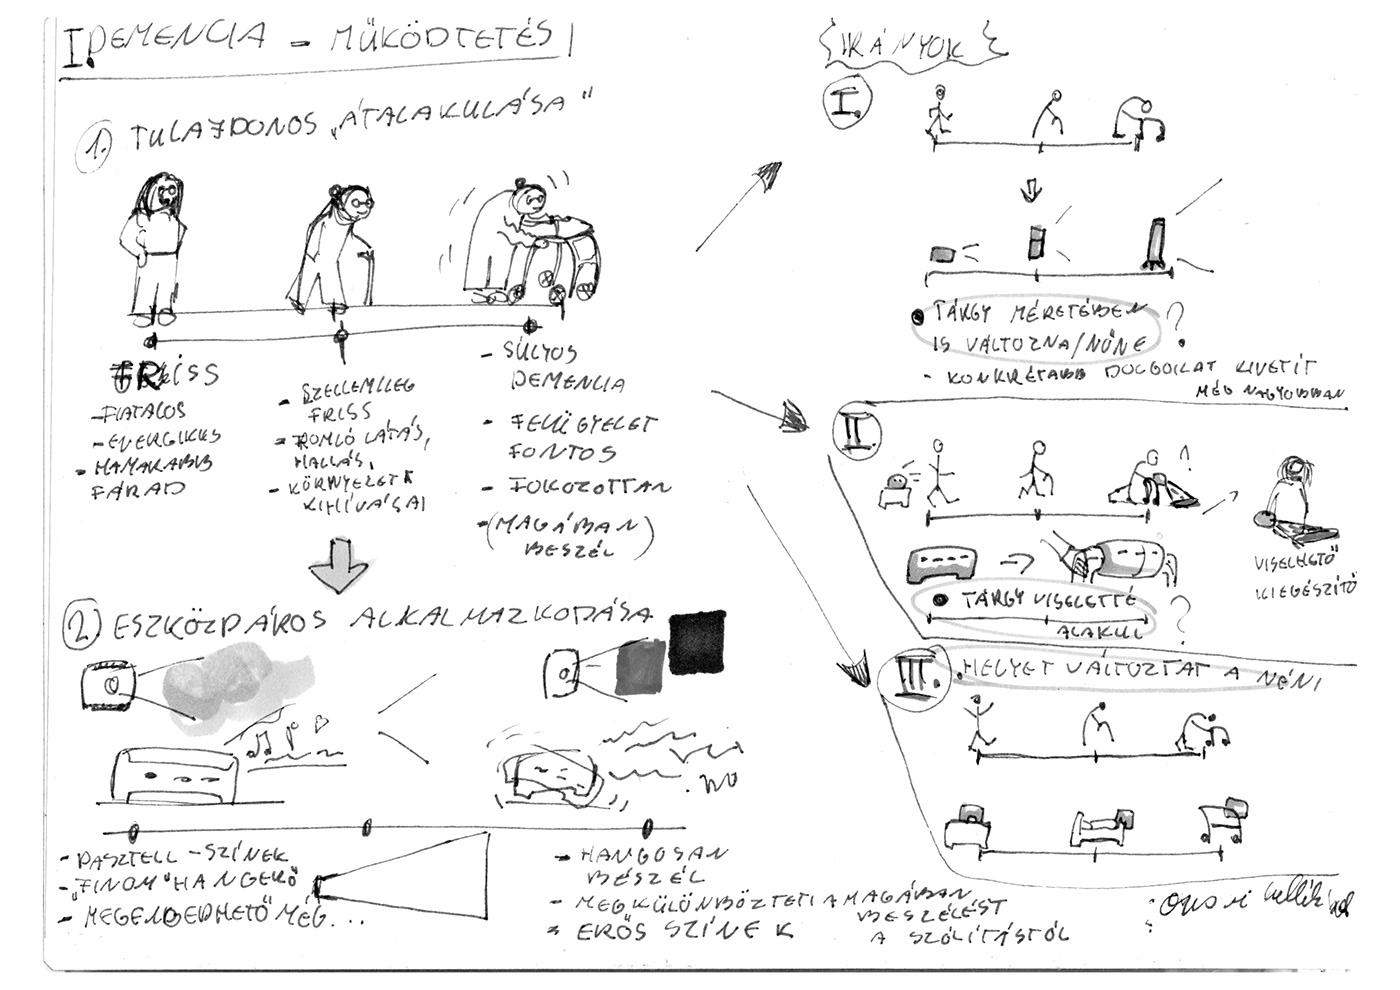 I. DEMENCIA - MŰKÖDTETÉS
1. TULAJDONOS „ÁTALAKULÁSA"
FRISS
- FIATALOS
- ENERGIKUS
- HAMARABB
FÁRAD
- SZELLEMILEG
FRISS
- ROMLÓ LÁTÁS,
HALLÁS,
- KÖRNYEZET
KIHÍVÁSAI
- SÚLYOS
DEMENCIA
- FELÜGYELET
FONTOS
- FOKOZOTTAN
- (MAGÁBAN
BESZÉL)
2. ESZKÖZPÁROS ALKALMAZKODÁSA
- PASZTELL-SZÍNEK
- „FINOM" HANGERŐ
- MEGENGEDHETŐ MÉG...
- HANGOSAN
BESZÉL
- MEGKÜLÖNBÖZTETI A MAGÁBAN
BESZÉLÉST
A SZÓLÍTÁSTÓL
- ERŐS SZÍNEK
IRÁNYOK
I.
TÁRGY MÉRETÉBEN
IS VÁLTOZNA/NŐNE ?
- KONKRÉTABB DOLGOKAT KIVETÍT
MÉG NAGYOBBAN
II.
!
VISELHETŐ
KIEGÉSZÍTŐ
TÁRGY VISELETTÉ
ALAKUL ?
III. HELYET VÁLTOZTAT A NÉNI